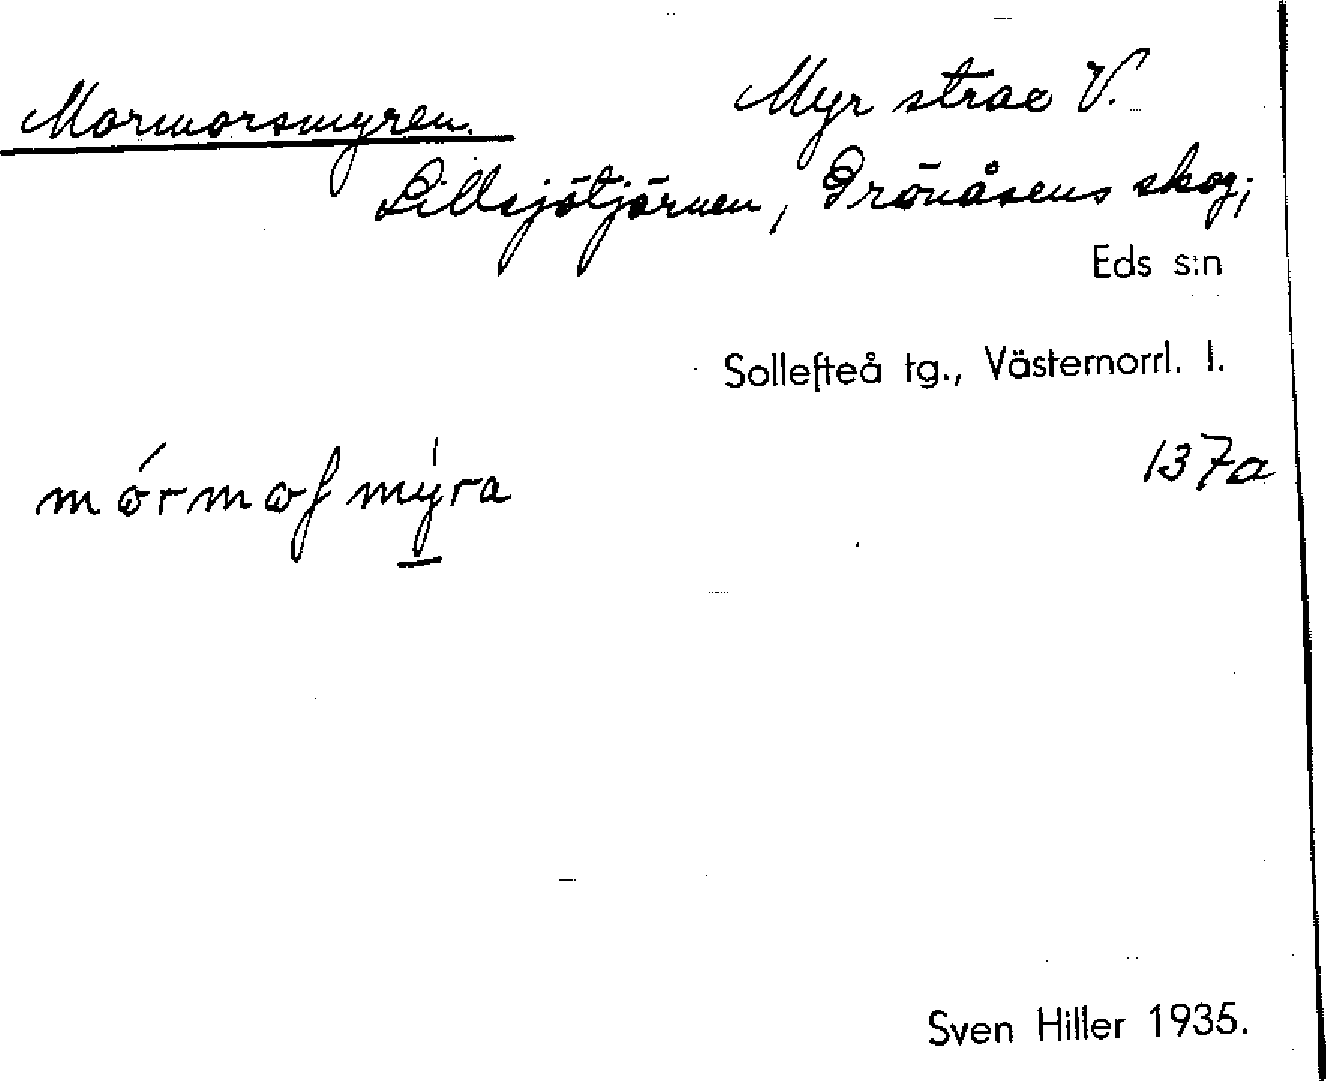 Mormorsmyren. Myr strax V.
Lillsjötjärnen, Grönåsens skog;
Eds s:n
Sollefteå tg., Västernorrl. l.
137a
mórmoʃmýra
Sven Hiller 1935.